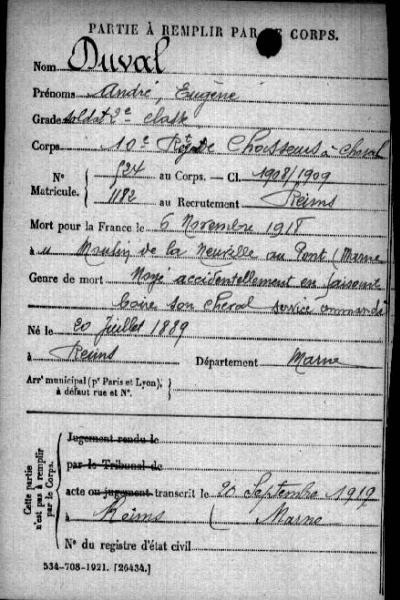 PARTIE À REMPLIR PAR LE CORPS.
Nom Duval
Prénoms André, Eugène
Grade soldat 2e classe
Corps 10e Rgt de Chasseurs à Cheval
N° 524 au Corps. — Cl. 1908/1909
Matricule. 1182 au Recrutement Reims
Mort pour la France le 6 Novembre 1918
à u Moulin de la Neuville au Pont (Marne
Genre de mort Noyé accidentellement en faisant
boire son cheval service commandé
Né le 20 Juillet 1889
à Reims Département Marne
Arrt municipal (pr Paris et Lyon),
à défaut rue et N°.
Cette partie
n'est pas à remplir
par le Corps.
Jugement rendu le
par le Tribunal de
acte ou jugement transcrit le 20 Septembre 1919
à Reims (Marne
N° du registre d'état civil
534-708-1921. [26434.]